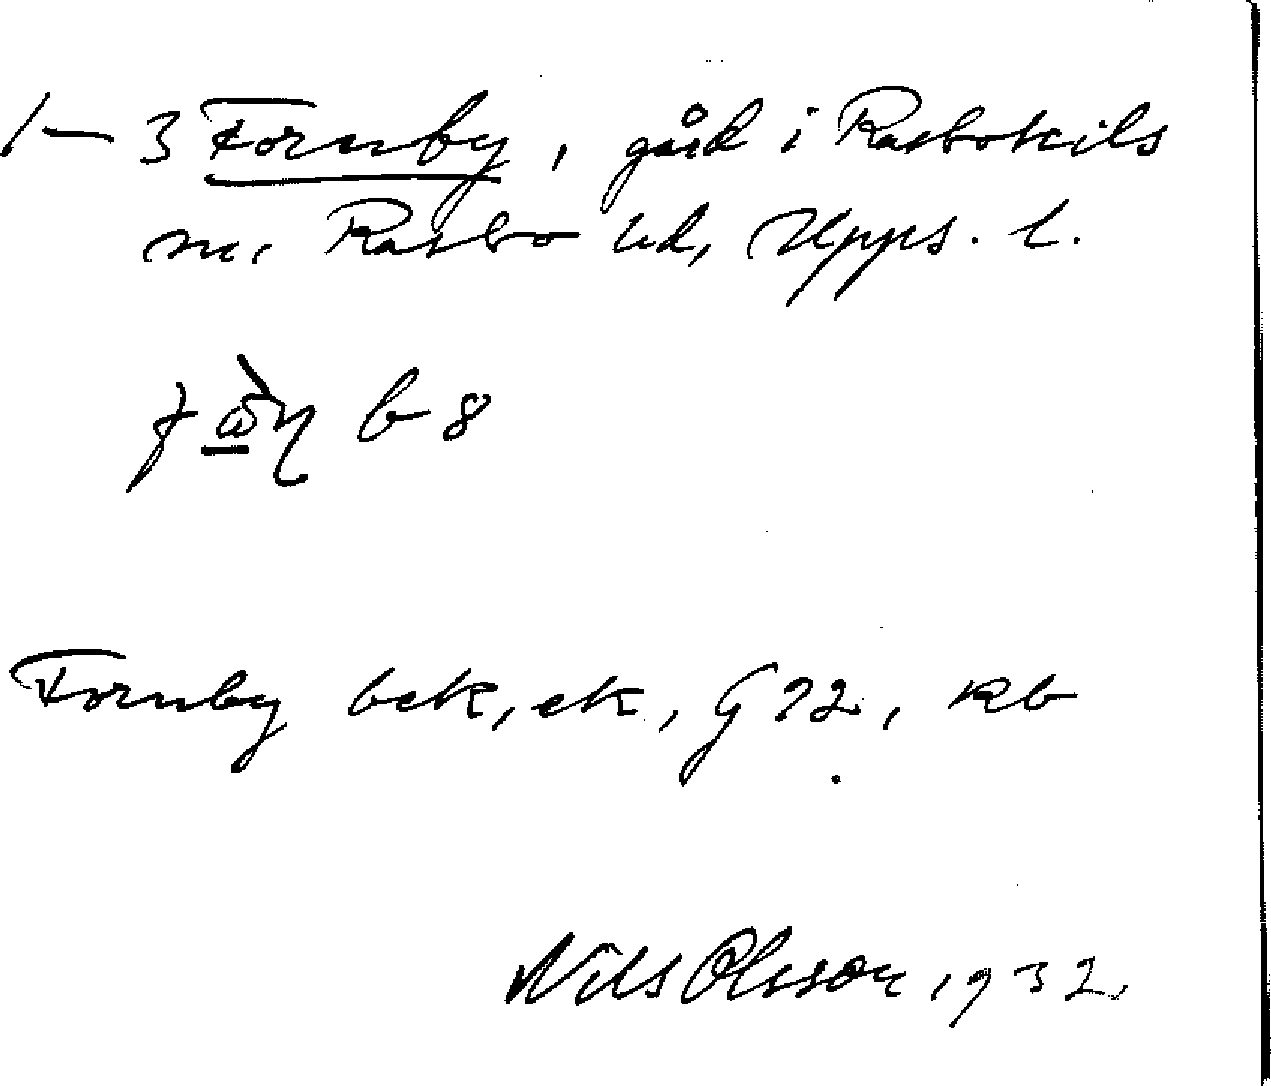 1–3 Fornby, gård i Rasbokils
sn. Rasbo hd, Upps. l.
Fornby bek, ek, G 22, Rb
Nils Olsson, 1932.